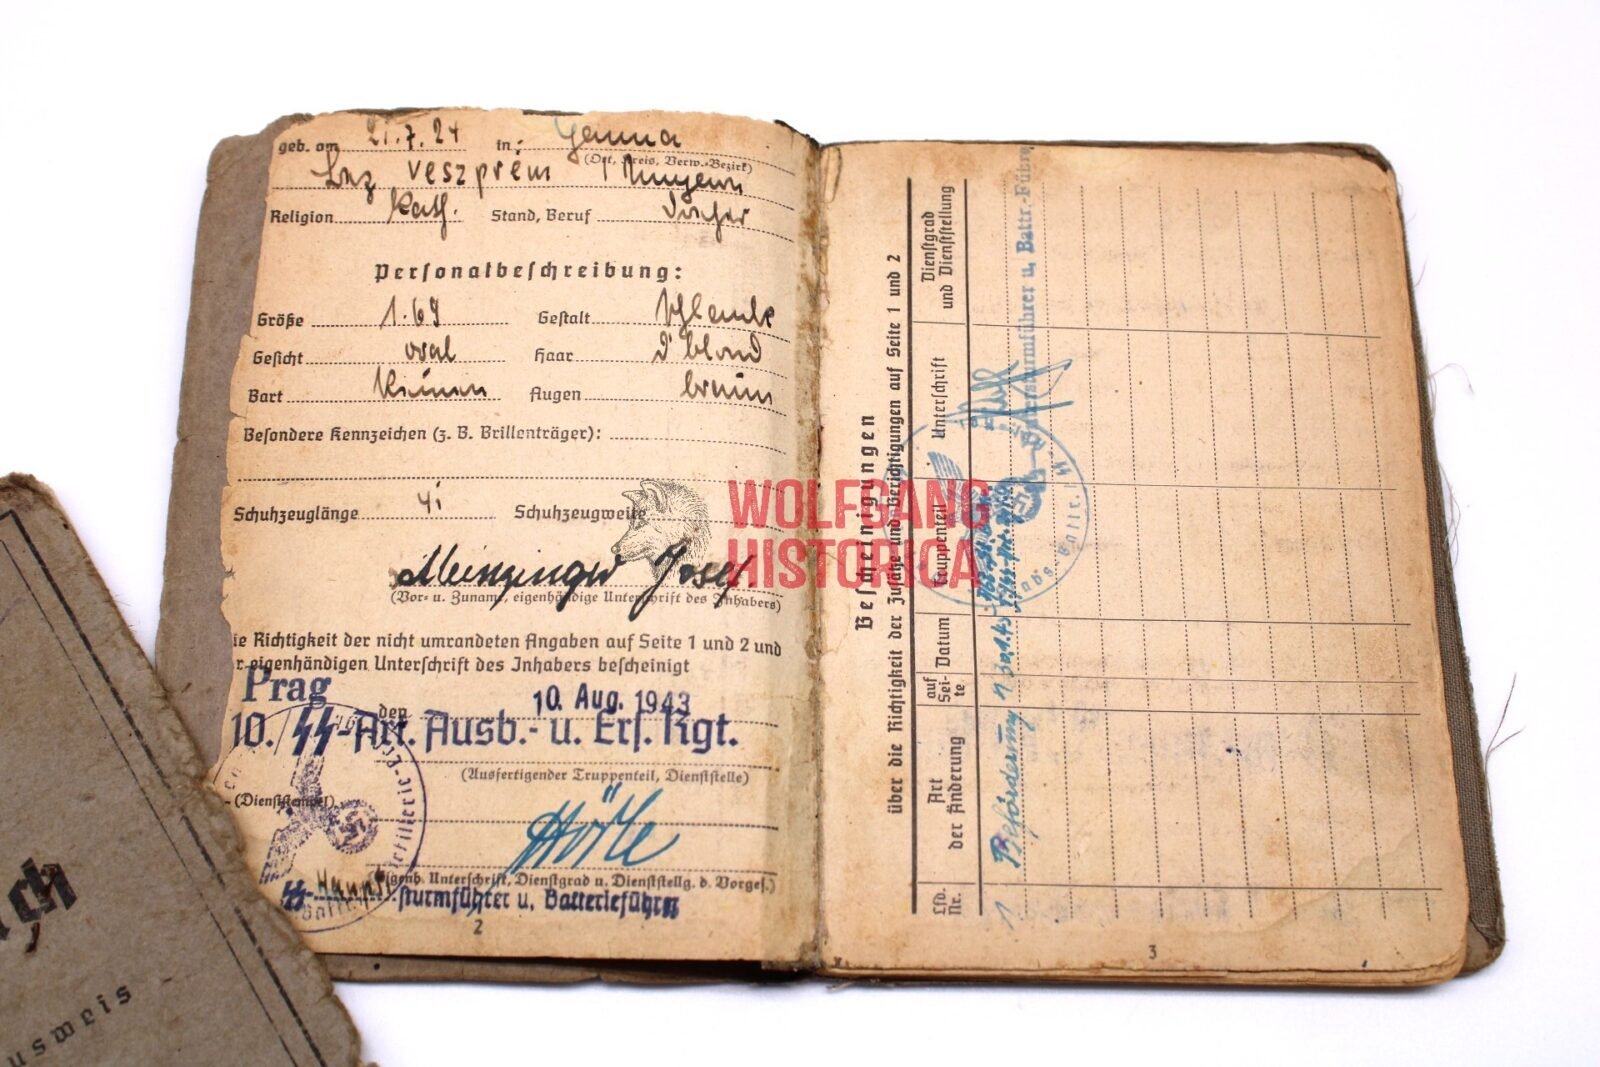 geb. am 21.7.24 in: Ganna
(Ort, Kreis, Verw.-Bezirk)
veszprém
Religion Kath. Stand, Beruf
Personalbeschreibung:
Größe 1.69 Gestalt schlank
Gesicht oval Haar d'blond
Bart keinen Augen braun
Besondere Kennzeichen (z. B. Brillenträger):
Schuhzeuglänge 41 Schuhzeugweite
Josef
(Vor- u. Zuname, eigenhändige Unterschrift des Inhabers)
ie Richtigkeit der nicht umrandeten Angaben auf Seite 1 und 2 und
r eigenhändigen Unterschrift des Inhabers bescheinigt
Prag den 10. Aug. 1943
10. SS-Art. Ausb.- u. Ers. Rgt.
(Ausfertigender Truppenteil, Dienststelle)
(Dienststempel)
(Eigenh. Unterschrift, Dienstgrad u. Dienststellg. d. Vorges.)
SS-Haupt sturmführer u. Batterieführer
2
Bescheinigungen
über die Richtigkeit der Zusätze und Berichtigungen auf Seite 1 und 2
Lfd. Nr.
Art der Änderung
auf Sei- te
Datum
Truppenteil
Unterschrift
Dienstgrad und Dienststellung
1 Beförderung 1
sturmführer u. Battr.-Führer
3
WOLFGANG
HISTORICA
usweis